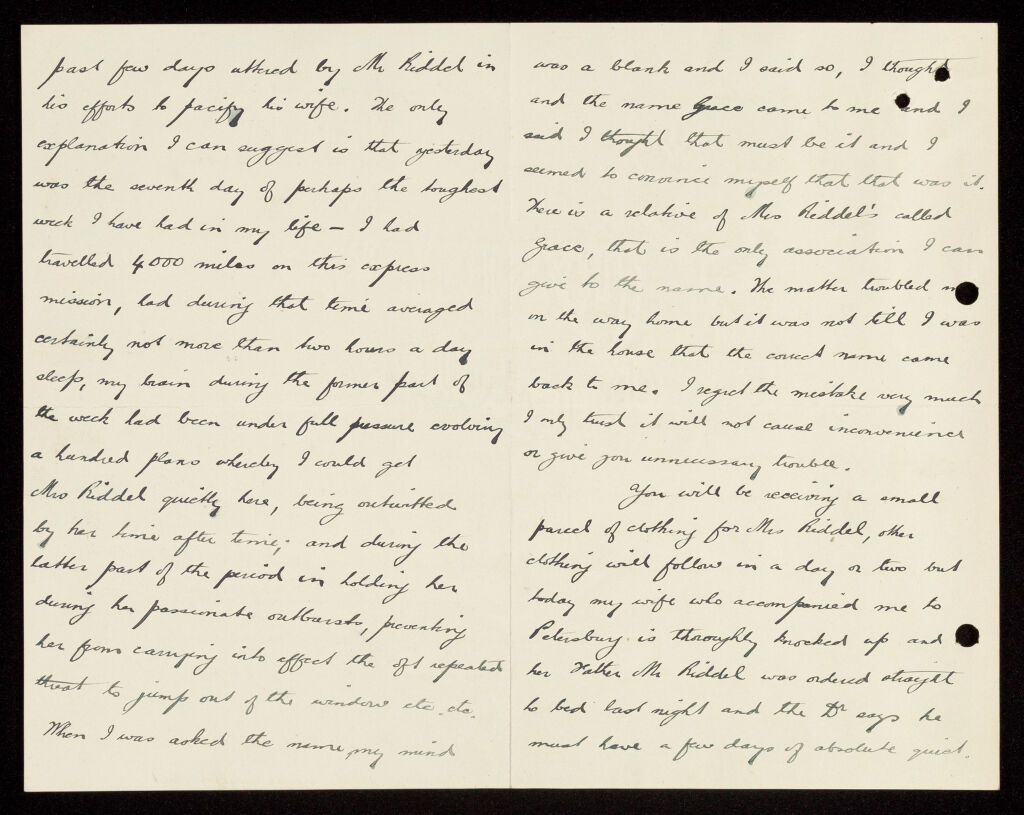 past few days uttered by Mr Riddel in
his efforts to pacify his wife. The only
explanation I can suggest is that yesterday
was the seventh day of perhaps the toughest
week I have had in my life – I had
travelled 4000 miles on this express
mission, had during that time averaged
certainly not more than two hours a day
sleep, my brain during the former part of
the week had been under full pressure evolving
a hundred plans whereby I could get
Mrs Riddel quietly here, being outwitted
by her time after time; and during the
latter part of the period in holding her
during her passionate outbursts, preventing
her from carrying into effect the oft repeated
threat to jump out of the window etc. etc.
When I was asked the name my mind
was a blank and I said so, I thought
and the name Grace came to me and I
said I thought that must be it and I
seemed to convince myself that that was it.
There is a relative of Mrs Riddel's called
Grace, that is the only association I can
give to the name. The matter troubled me
on the way home but it was not till I was
in the house that the correct name came
back to me. I regret the mistake very much
I only trust it will not cause inconvenience
or give you unnecessary trouble.
You will be receiving a small
parcel of clothing for Mrs Riddel, other
clothing will follow in a day or two but
today my wife who accompanied me to
Petersburg is thoroughly knocked up and
her Father Mr Riddel was ordered straight
to bed last night and the Dr says he
must have a few days of absolute quiet.